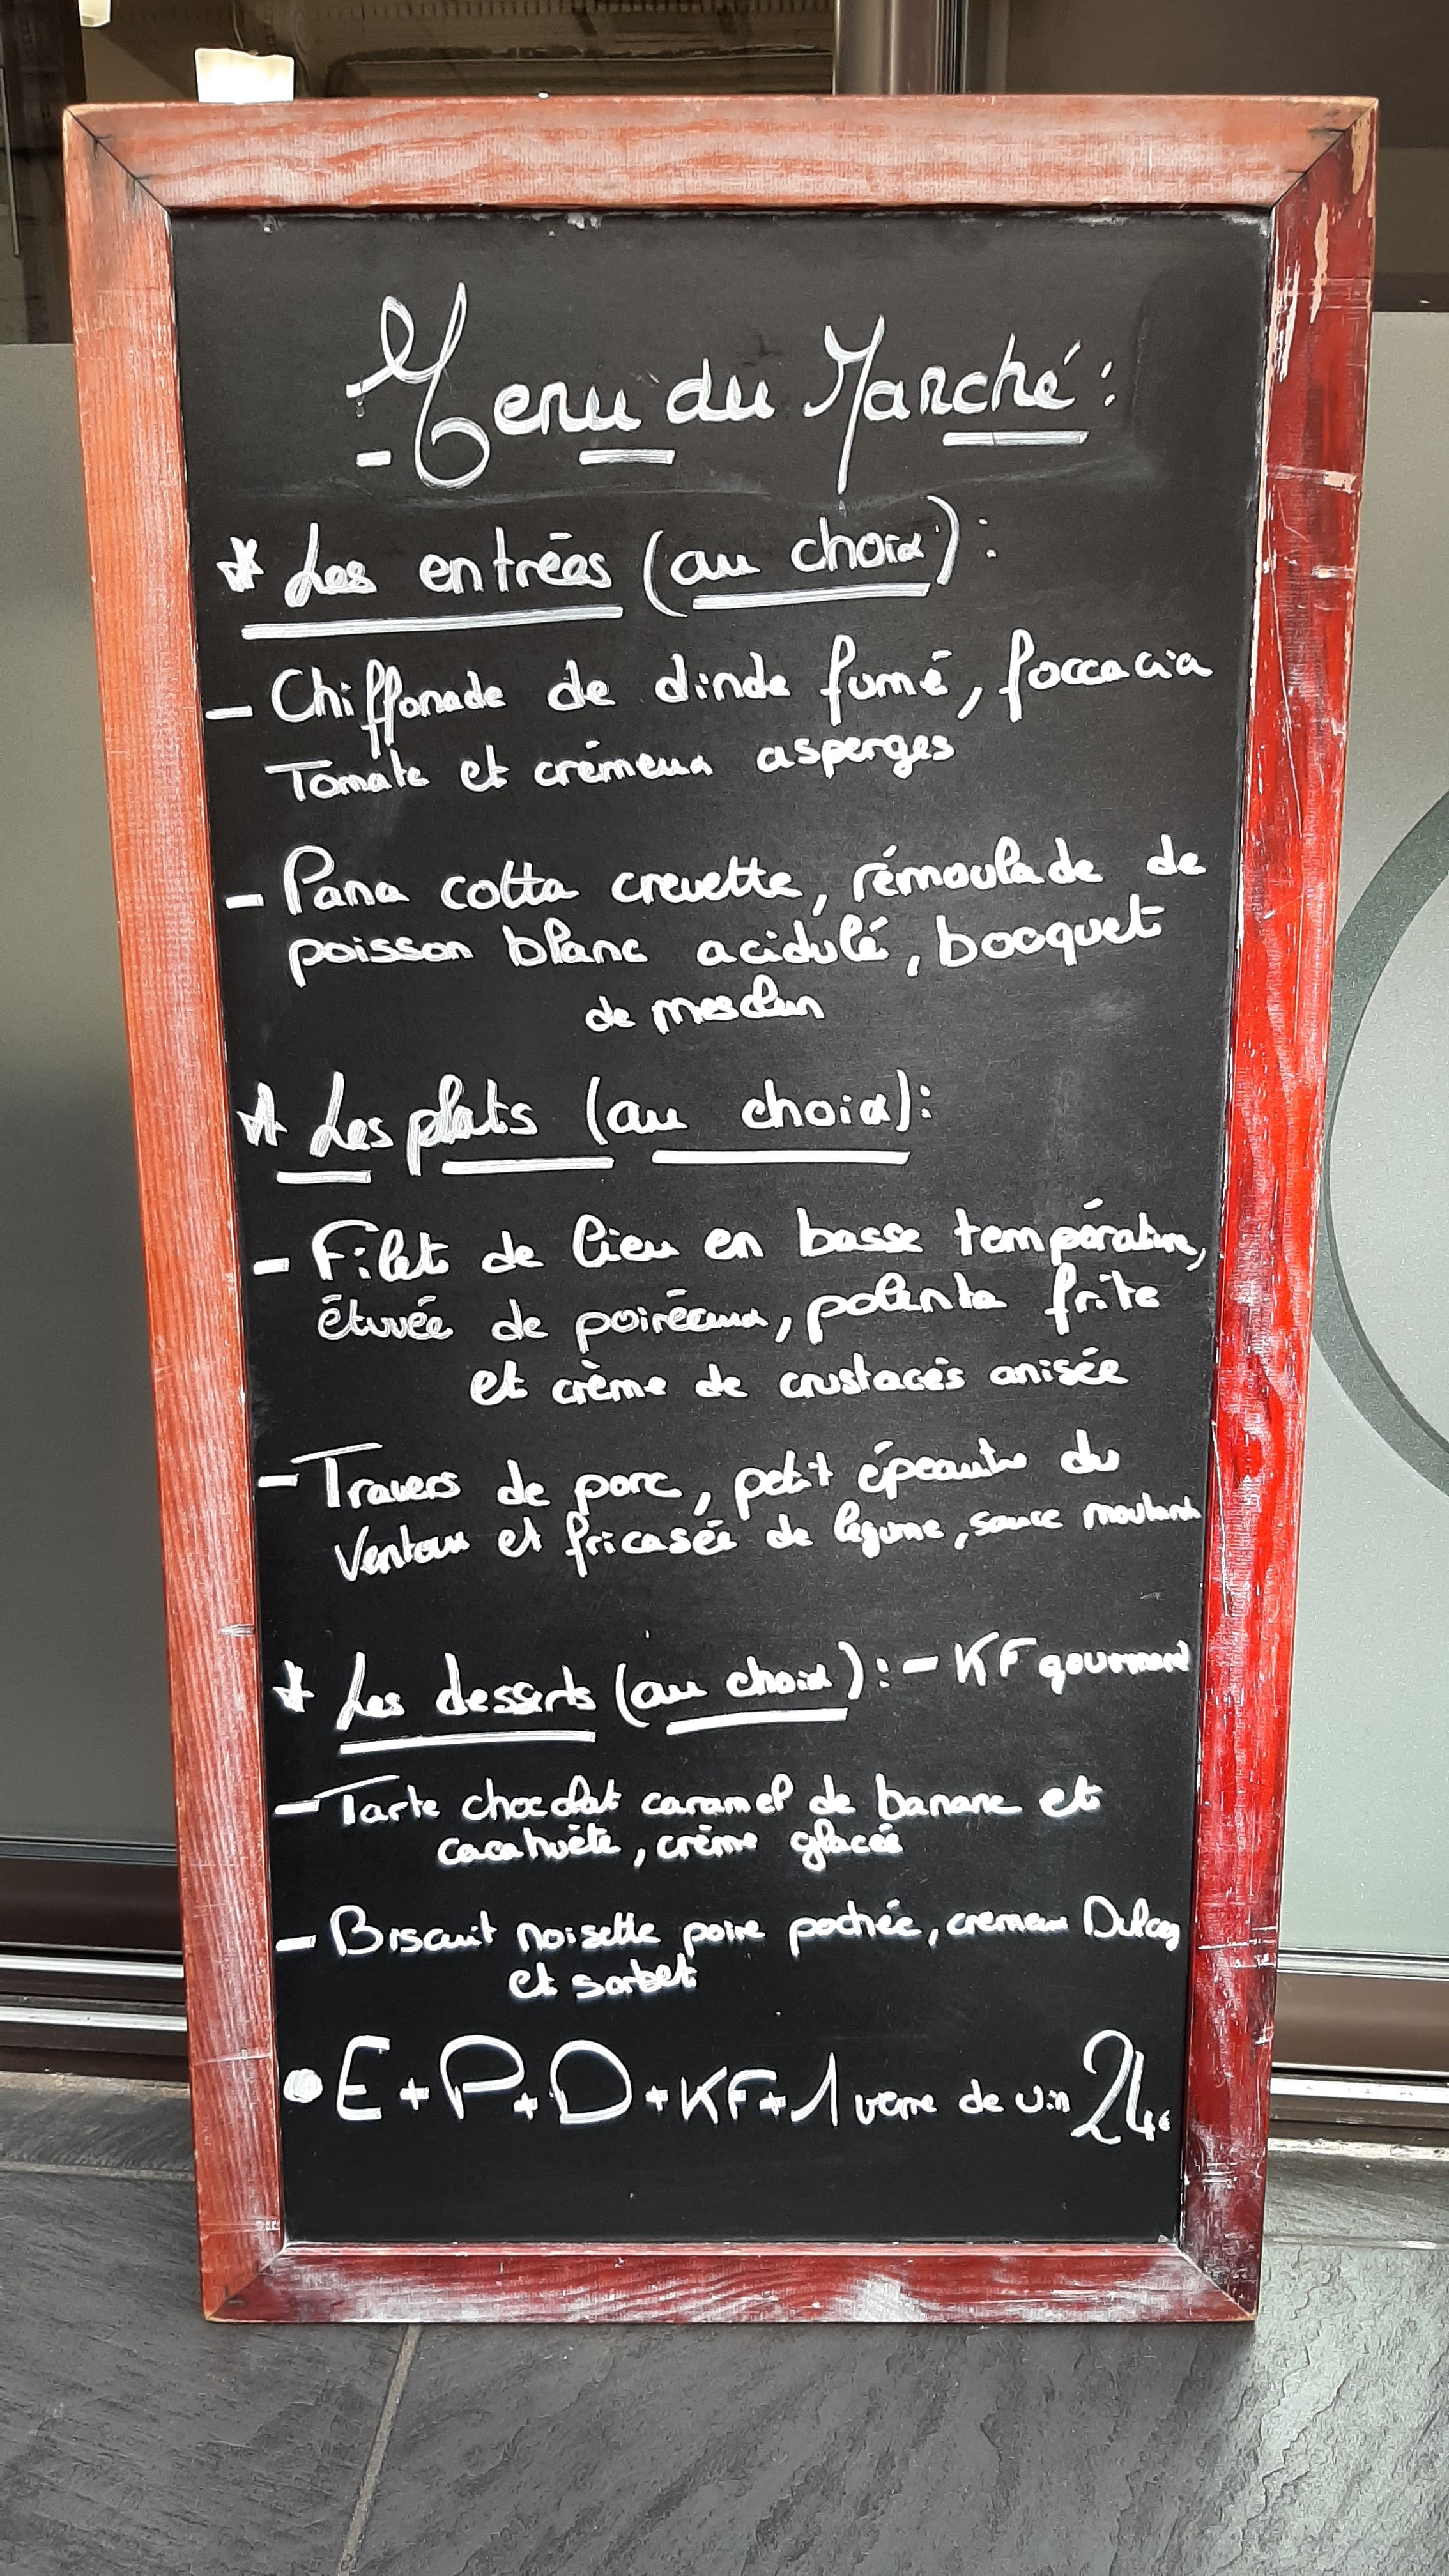 Menu du Marché :
* Les entrées (au choix) :
- Chiffonade de dinde fumé, foccacia
Tomate et crémeux asperges
- Pana cotta crevette, rémoulade de
poisson blanc acidulé, bocquet
de mesclun
* Les plats (au choix) :
- Filet de lieu en basse température,
étuvée de poiréeaux, polenta frite
et crème de crustacés anisée
- Travers de porc, petit épeautre du
Ventoux et fricasée de légume, sauce moutard
* Les desserts (au choix) : - KF gourmand
- Tarte chocolat caramel de banane et
cacahuète, crème glacée
- Biscuit noisette poire pochée, cremeux Dulcey
et sorbet
• E + P + D + KF + 1 verre de vin 24€